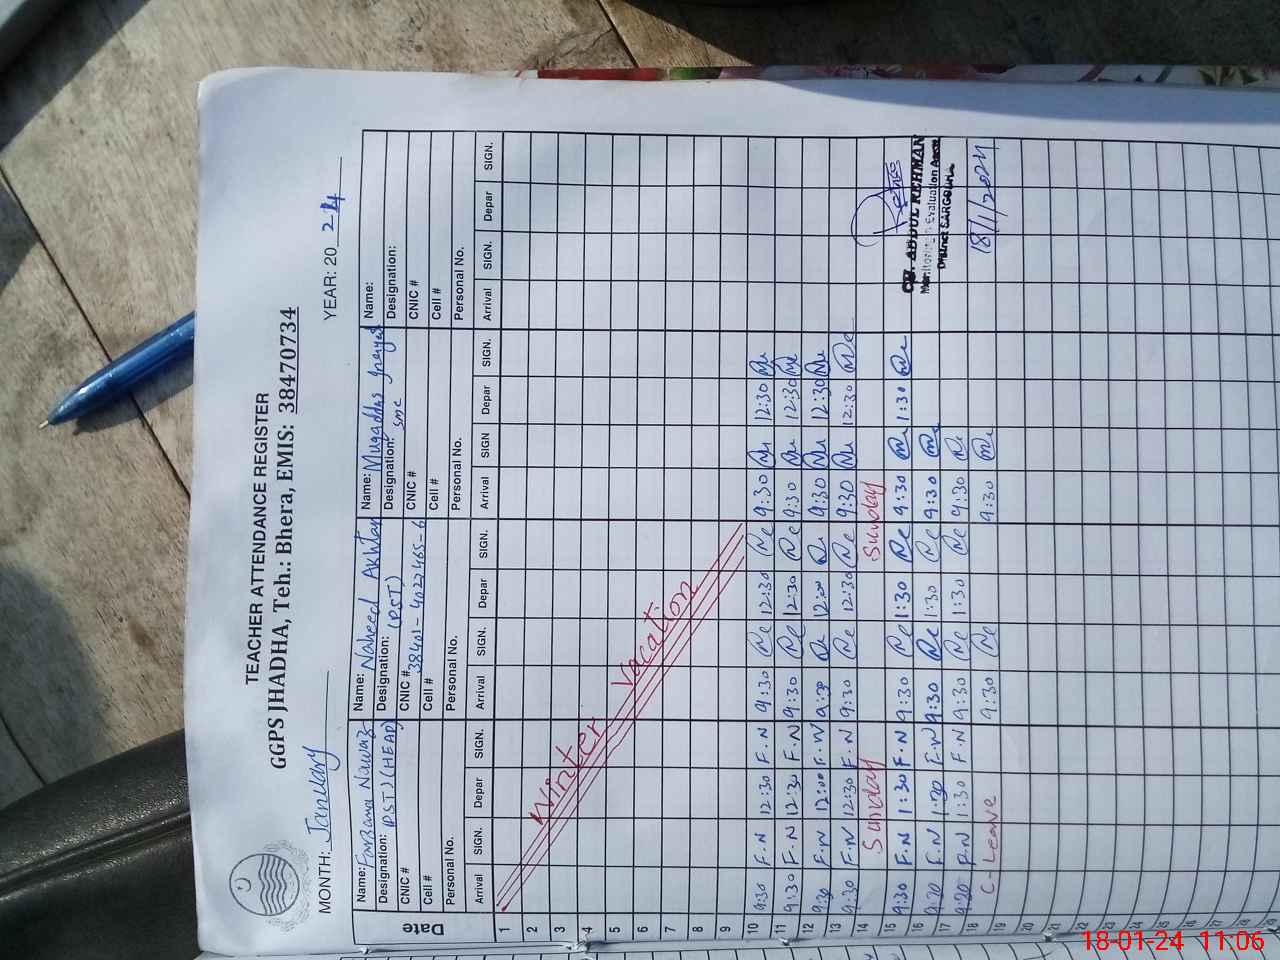 TEACHER ATTENDANCE REGISTER
GGPS JHADHA, Teh.: Bhera, EMIS: 38470734
MONTH: January YEAR: 20 24
Date
Name: Farzana Nawaz Name: Naheed Akhtar Name: Muqaddas Name:
Designation: (PST) (HEAD) Designation: (PST) Designation: smc Designation:
CNIC # CNIC # 38401-4022465-6 CNIC # CNIC #
Cell # Cell # Cell # Cell #
Personal No. Personal No. Personal No. Personal No.
Arrival SIGN. Depar SIGN. Arrival SIGN. Depar SIGN. Arrival SIGN Depar SIGN. Arrival SIGN. Depar SIGN.
1
2
3
4
5
6
7
8
9
Winter Vacation
10 9:30 F.N 12:30 F.N 9:30 12:30 9:30 12:30
11 9:30 F.N 12:30 F.N 9:30 12:30 9:30 12:30
12 9:30 F.N 12:00 F.N 9:30 12:00 9:30 12:30
13 9:30 F.N 12:30 F.N 9:30 12:30 9:30 12:30
14 Sunday Sunday
15 9:30 F.N 1:30 F.N 9:30 1:30 9:30 1:30
16 9:30 F.N 1:30 F.N 9:30 1:30 9:30
17 9:30 F.N 1:30 F.N 9:30 1:30 9:30
18 C-Leave 9:30 9:30
19
20
21
22
23
24
25
26
27
28
CH. ABDUL REHMAN
Monitoring Evaluation
District SARGODHA
18/1/2024
18-01-24 11:06